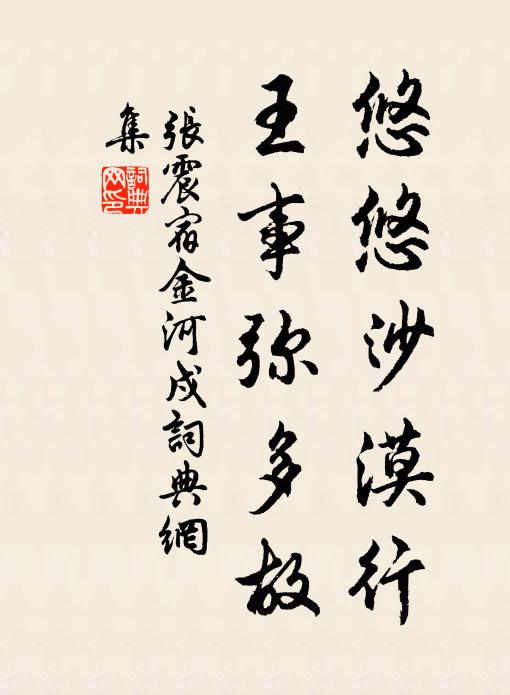 悠悠沙漠行
王事弥多故
張震宿金河戍詞典網
集
詞典
网印